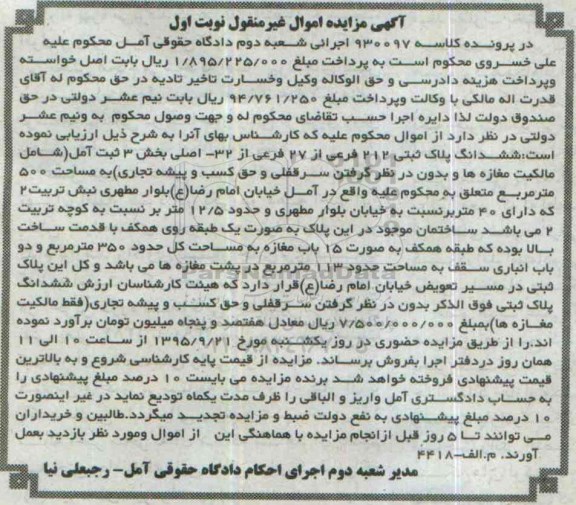 آگهی مزایده اموال غیرمنقول نوبت اول
در پرونده کلاسه ۹۳۰۰۹۷ اجرائی شعبه دوم دادگاه حقوقی آمل محکوم علیه
علی خسروی محکوم است به پرداخت مبلغ ۱/۸۹۵/۲۲۵/۰۰۰ ریال بابت اصل خواسته
وپرداخت هزینه دادرسی و حق الوکاله وکیل وخسارت تاخیر تادیه در حق محکوم له آقای
قدرت اله مالکی با وکالت وپرداخت مبلغ ۹۴/۷۶۱/۲۵۰ ریال بابت نیم عشر دولتی در حق
صندوق دولت لذا دایره اجرا حسب تقاضای محکوم له و جهت وصول محکوم به ونیم عشر
دولتی در نظر دارد از اموال محکوم علیه که کارشناس بهای آنرا به شرح ذیل ارزیابی نموده
است:ششدانگ پلاک ثبتی فرعی از ۲۷ فرعی از ۳۲- اصلی بخش ۳ ثبت آمل(شامل
مالکیت مغازه ها و بدون در نظر گرفتن سرقفلی و حق کسب و پیشه تجاری)به مساحت ۵۰۰
مترمربع متعلق به محکوم علیه واقع در آمل خیابان امام رضا(ع)بلوار مطهری نبش تربیت۲
که دارای ۴۰ متربرنسبت به خیابان بلوار مطهری و حدود ۱۲/۵ متر بر نسبت به کوچه تربیت
۲ می باشد ساختمان موجود در این پلاک به صورت یک طبقه روی همکف با قدمت ساخت
بالا بوده که طبقه همکف به صورت ۱۵ باب مغازه به مساحت کل حدود ۳۵۰ مترمربع و دو
باب انباری سقف به مساحت حدود مترمربع در پشت مغازه ها می باشد و کل این پلاک
ثبتی در مسیر تعویض خیابان امام رضا(ع)قرار دارد که هیئت کارشناسان ارزش ششدانگ
پلاک ثبتی فوق الذکر بدون در نظر گرفتن سرقفلی و حق کسب و پیشه تجاری(فقط مالکیت
مغازه ها)بمبلغ ۷/۵۰۰/۰۰۰/۰۰۰ ریال معادل هفتصد و پنجاه میلیون تومان برآورد نموده
اند.را از طریق مزایده حضوری در روز یکشنبه مورخ ۱۳۹۵/۹/۲۱ از ساعت ۱۰ الی ۱۱
همان روز دردفتر اجرا بفروش برساند. مزایده از قیمت پایه کارشناسی شروع و به بالاترین
قیمت پیشنهادی فروخته خواهد شد برنده مزایده می بایست ۱۰ درصد مبلغ پیشنهادی را
به حساب دادگستری آمل واریز و الباقی را ظرف مدت یکماه تودیع نماید در غیر اینصورت
۱۰ درصد مبلغ پیشنهادی به نفع دولت ضبط و مزایده تجدید میگردد.طالبین و خریداران
می توانند تا ۵ روز قبل ازانجام مزایده با هماهنگی این از اموال ومورد نظر بازدید بعمل
آورند. م.الف-۴۴۱۸
مدیر شعبه دوم اجرای احکام دادگاه حقوقی آمل- رجبعلی نیا